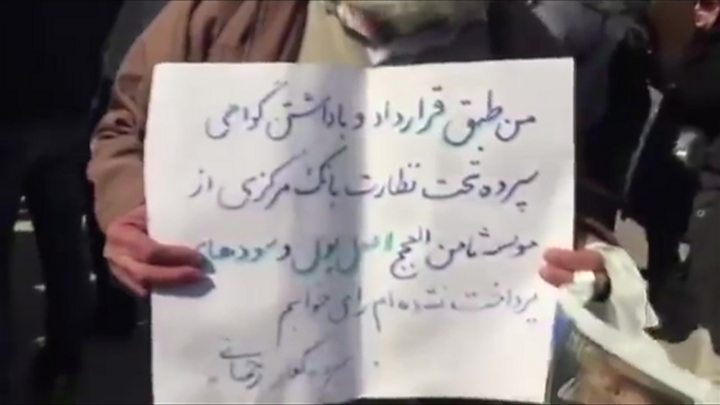 من طبق قرارداد و با داشتن گواهی
سپرده تحت نظارت بانک مرکزی از
موسسه ثامن الحجج اصل پول و سودهای
پرداخت نشده ام رای خواهم
سپرده گذار